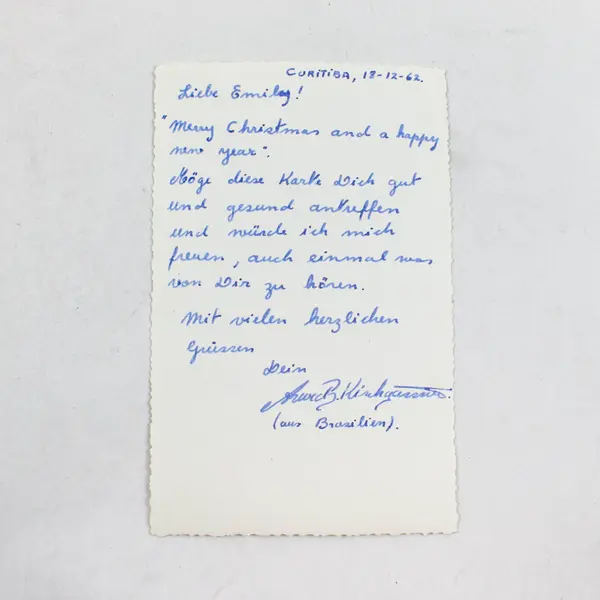 CURITIBA, 18-12-62.
Liebe Emily!
"Merry Christmas and a happy
new year".
Möge diese Karte Dich gut
und gesund antreffen
und würde ich mich
freuen, auch einmal was
von Dir zu hören.
Mit vielen herzlichen
Grüssen
Dein
(aus Brasilien).